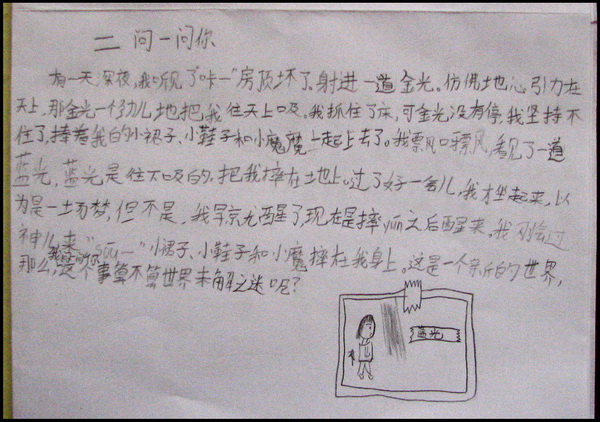 二 问一问你
有一天深夜，我听见了"咔—"房顶坏了。射进一道金光。仿佛地心引力在
天上，那金光一个劲儿地把我往天上吸。我抓住了床，可金光没有停，我坚持不
住了，捧着我的小裙子、小鞋子和小魔魔一起上去了。我飘啊飘，看见了一道
蓝光，蓝光是往下吸的，把我摔在地上。过了好一会儿，我才坐起来，以
为是一场梦，但不是，我早就醒了，现在是摔yūn之后醒来。我刚会过
神儿来"sōu—"小裙子、小鞋子和小魔摔在我身上。这是一个新的世界，
我要问你
那么，这个事算不算世界未解之迷呢？
蓝光